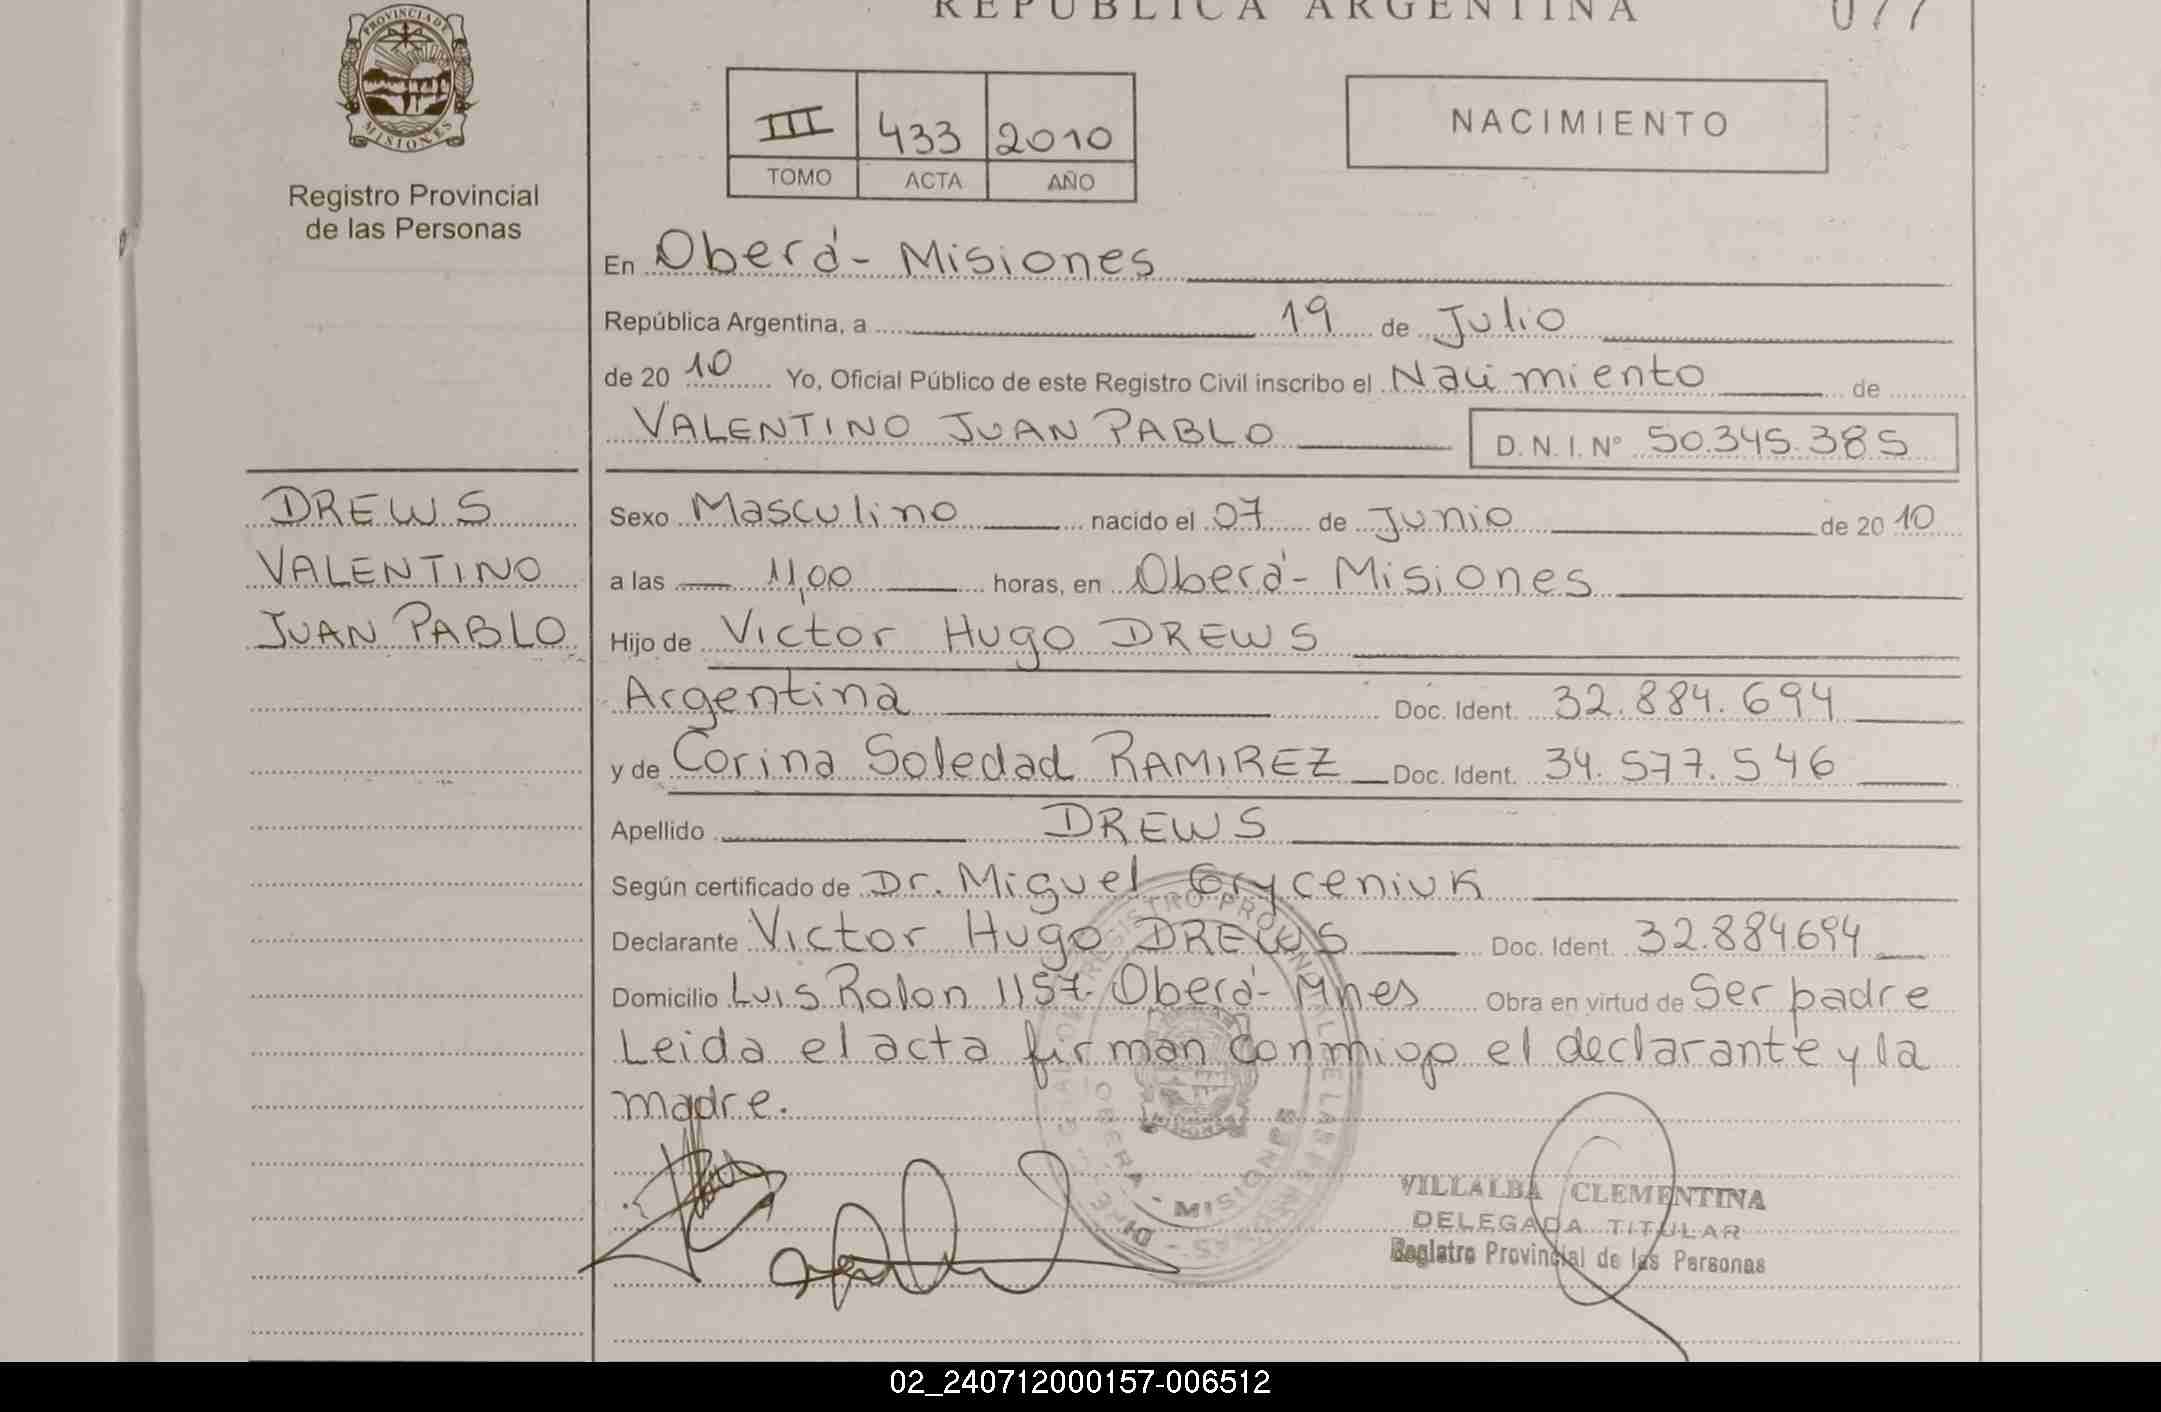 REPUBLICA ARGENTINA
077
PROVINCIA DE
MISIONES
Registro Provincial
de las Personas
III 433 2010
TOMO ACTA AÑO
NACIMIENTO
En Oberá - Misiones
República Argentina, a 19 de Julio
de 20 10 Yo, Oficial Público de este Registro Civil inscribo el Nacimiento de
VALENTINO JUAN PABLO D. N. I. Nº 50.345.385
DREWS
VALENTINO
JUAN PABLO
Sexo Masculino nacido el 07 de Junio de 20 10
a las 11,00 horas, en Oberá - Misiones
Hijo de Victor Hugo DREWS
Argentina Doc. Ident. 32.884.694
y de Corina Soledad RAMIREZ Doc. Ident. 34.577.546
Apellido DREWS
Según certificado de Dr. Miguel Gryceniuk
Declarante Victor Hugo DREWS Doc. Ident. 32.884694
Domicilio Luis Rolon 1157. Oberá - Mnes Obra en virtud de Ser padre
Leida el acta firman conmigo el declarante y la
madre.
OBERA - MISIONES
VILLALBA CLEMENTINA
DELEGADA TITULAR
Registro Provincial de las Personas
02_240712000157-006512